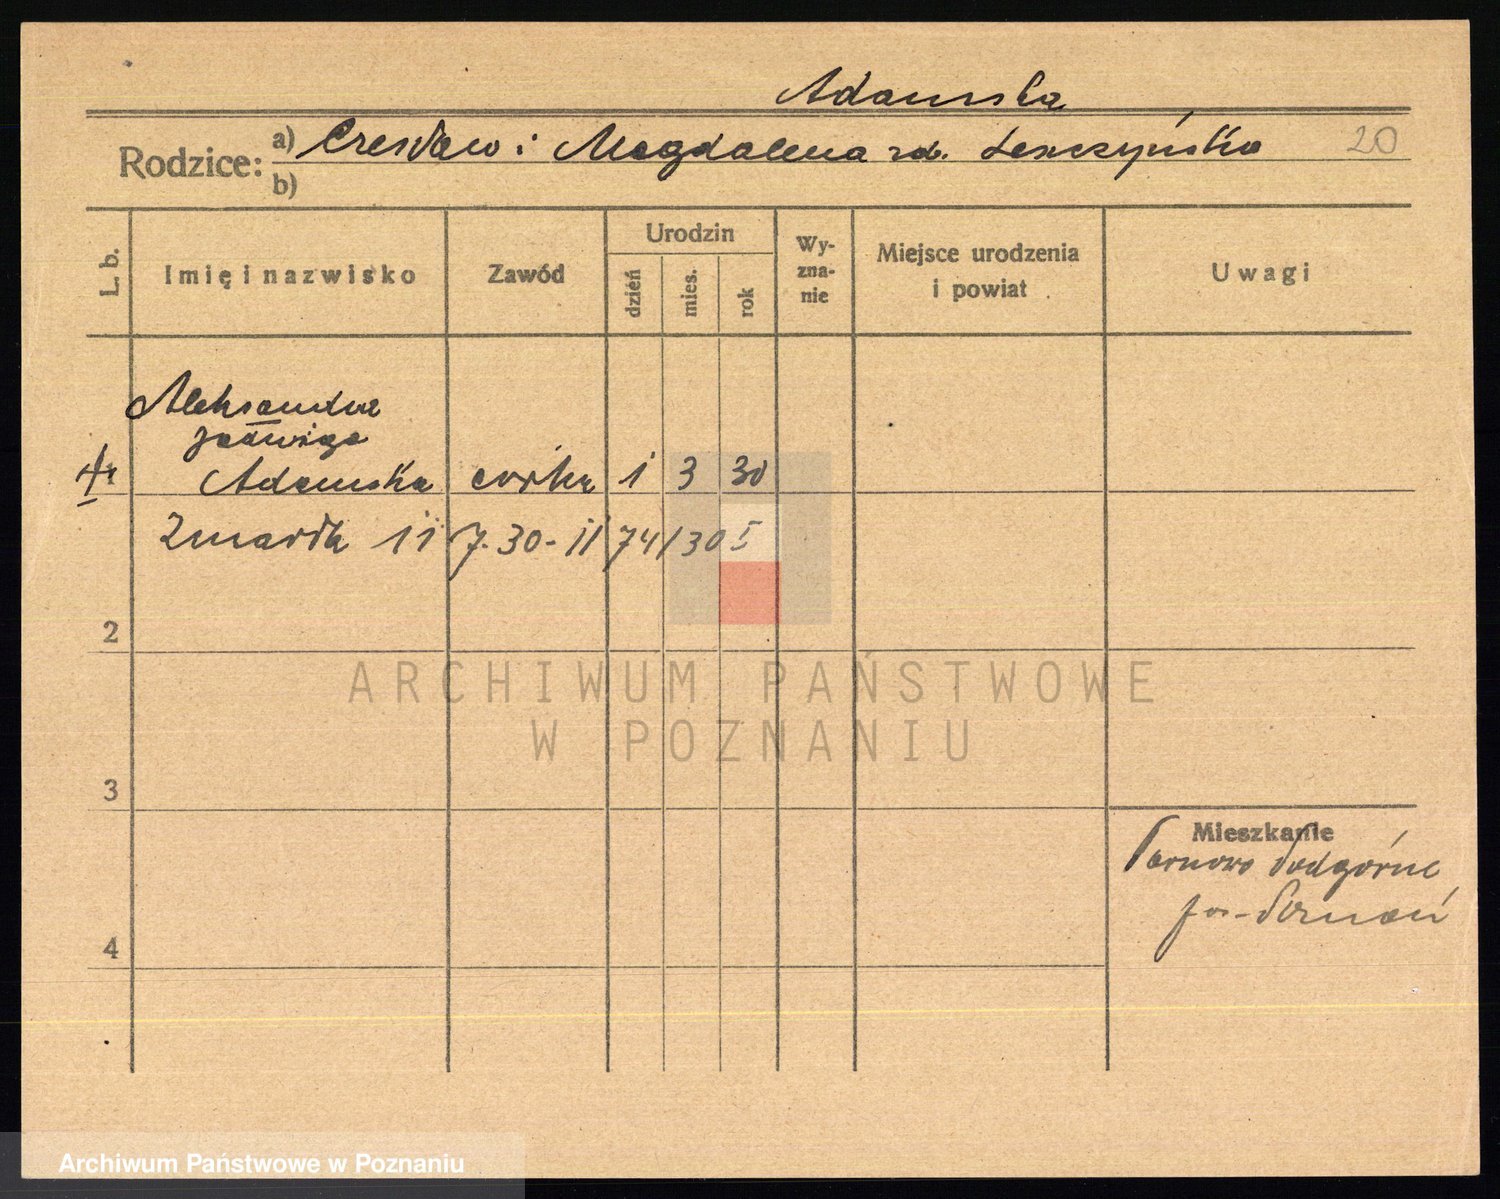 Adamska
Rodzice: a) Czesław i Magdalena zd. Leszczyńska 20
b)
L. b.
Imię i nazwisko
Zawód
Urodzin
dzień
mies.
rok
Wy-
zna-
nie
Miejsce urodzenia
i powiat
Uwagi
Aleksandra
Jadwiga
Adamska córka 1 3 30
Zmarła 11 7. 30 - II 74/30 I
2
3
4
Mieszkanie
Tarnowo Podgórne
pow. Poznań
ARCHIWUM PAŃSTWOWE
W POZNANIU
Archiwum Państwowe w Poznaniu